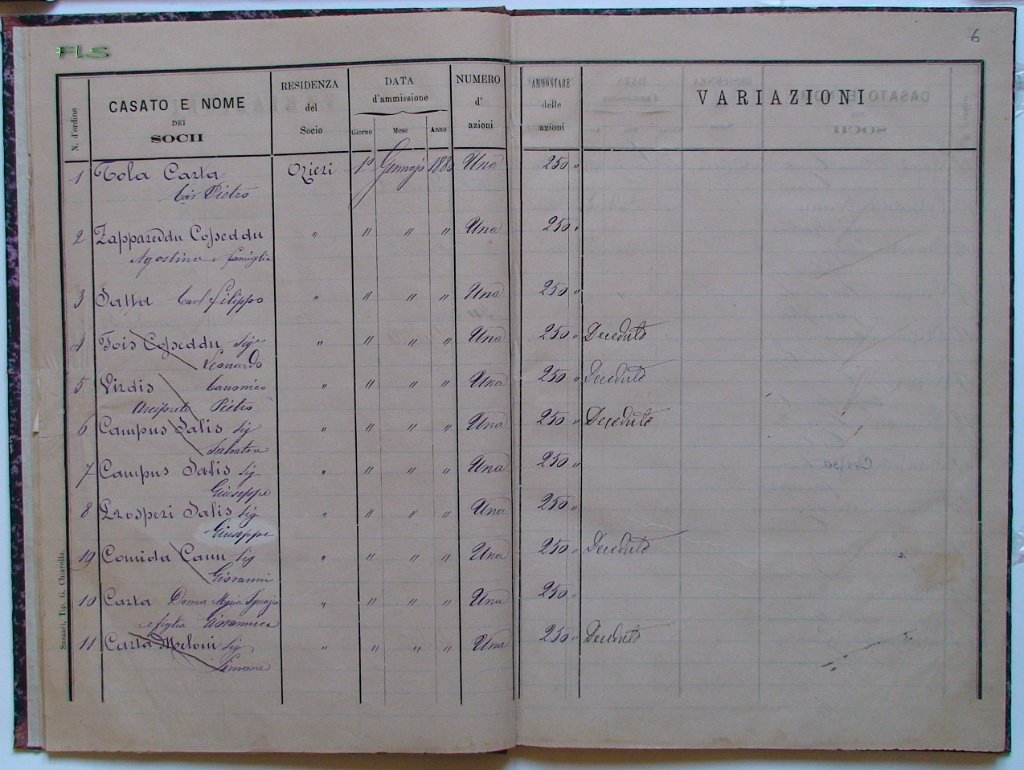 FLS
6
N. d'ordine
CASATO E NOME
DEI
SOCII
RESIDENZA
del
Socio
DATA
d'ammissione
Giorno Mese Anno
NUMERO
d'
azioni
AMMONTARE
delle
azioni
VARIAZIONI
1 Tola Carta Ozieri 1° Gennajo Una 250 "
Cav Pietro
2 Zappareddu Cosseddu " " " " Una 250 "
Agostino e famiglia
3 Satta Cav Filippo " " " " Una 250 "
4 Tois Cosseddu Sig " " " " Una 250 " Deceduto
Leonardo
5 Virdis Canonico " " " " Una 250 " Deceduto
Arciprete Pietro
6 Campus Salis Sig " " " " Una 250 " Deceduto
Salvatore
7 Campus Salis Sig " " " " Una 250 "
Giuseppe
8 Prosperi Salis Sig " " " " Una 250 "
Giuseppe
9 Comida Canu Sig " " " " Una 250 " Deceduto
Giovanni
10 Carta Donna Maria Ignazia " " " " Una 250 "
e figlia Giovannica
11 Carta Meloni Sig " " " " Una 250 " Deceduto
Simone
Sassari, Tip. G. Chiarella.